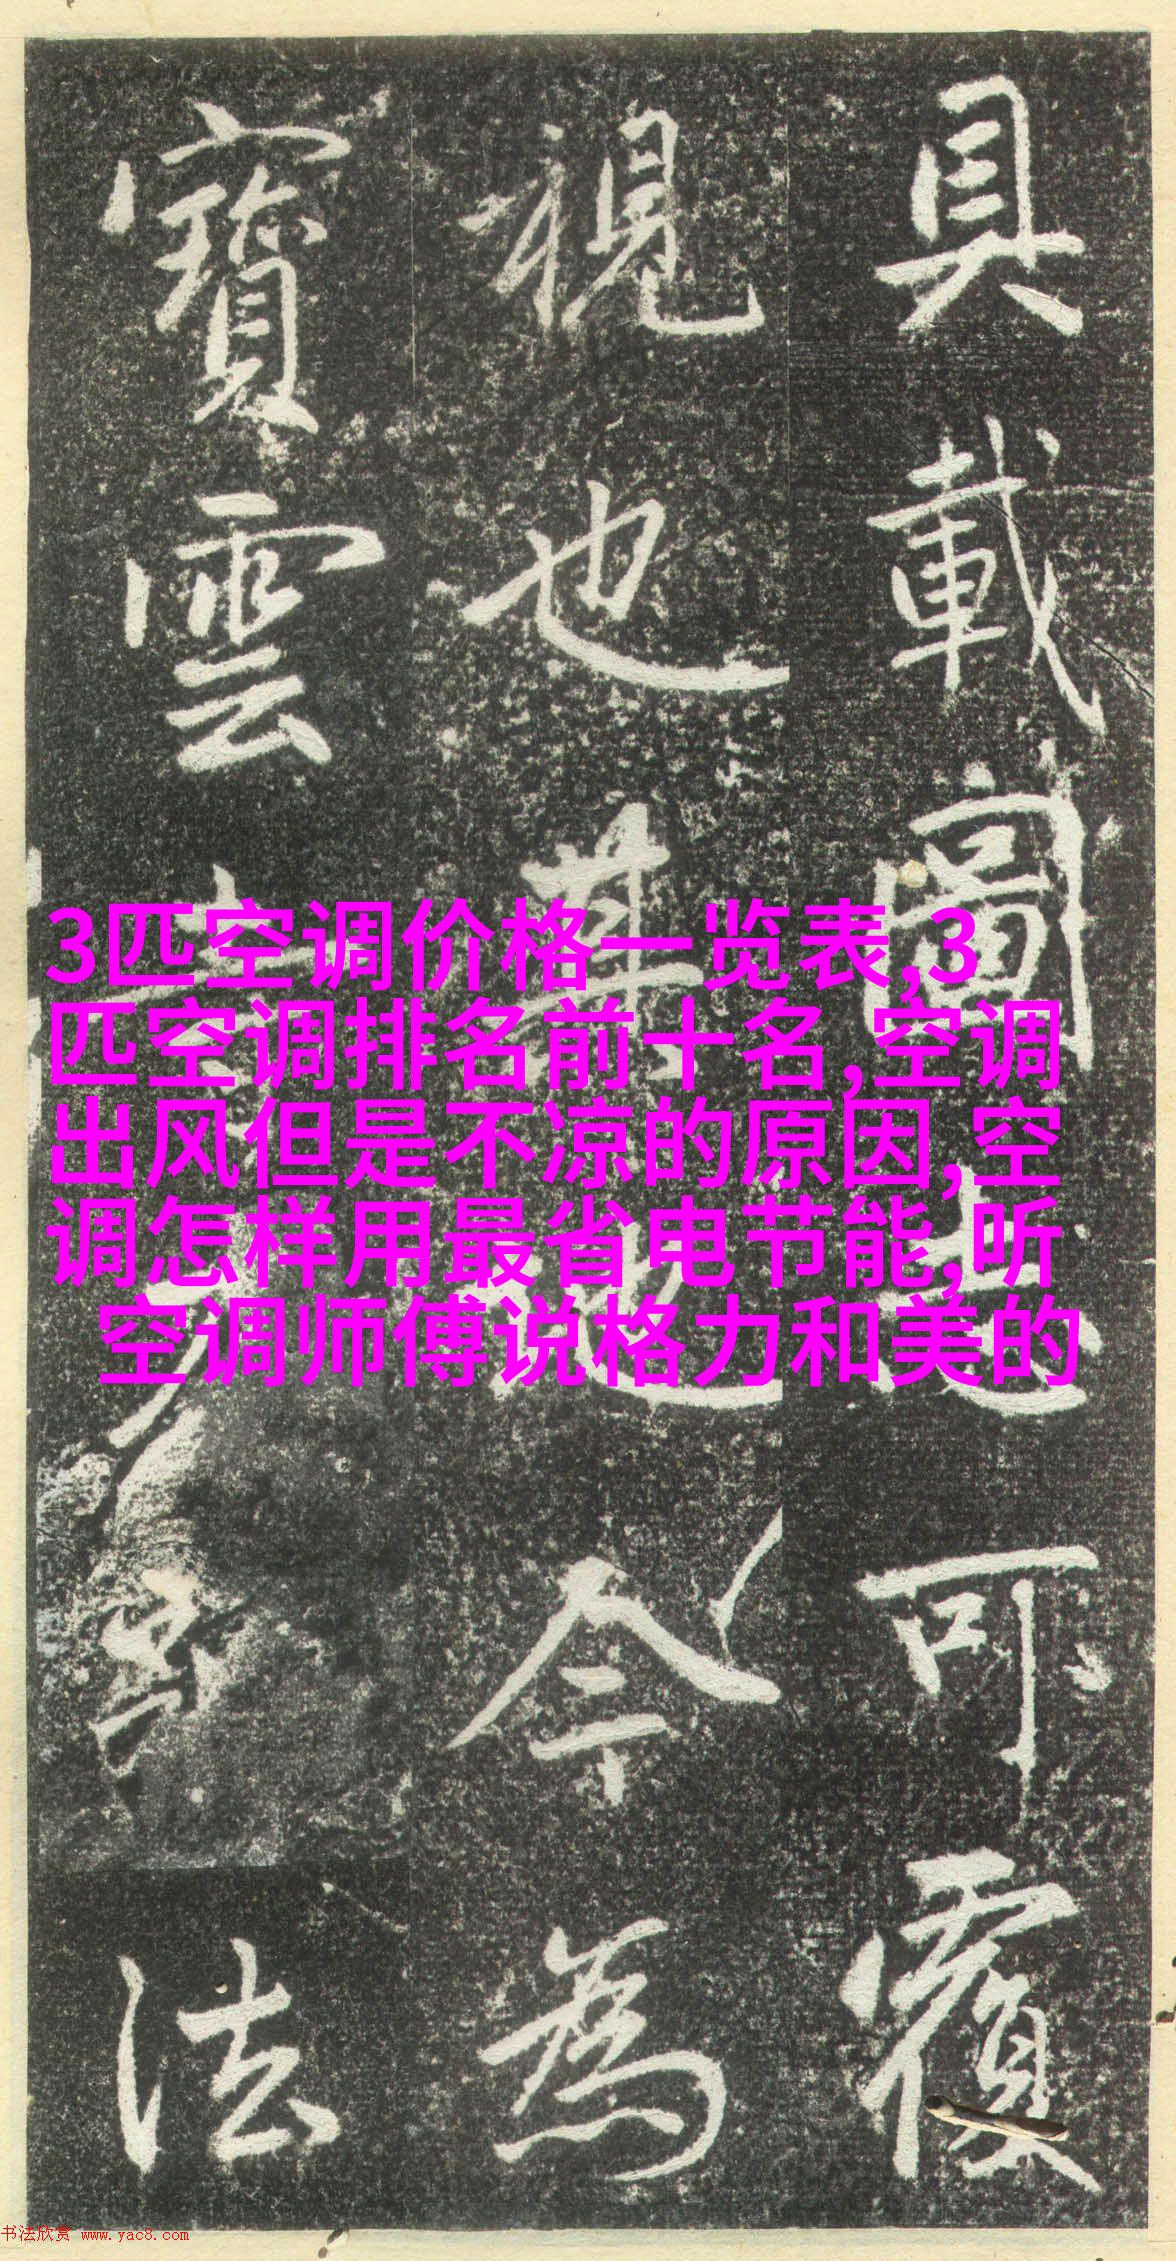 具載圖志可覆
視也其地今為
寶雲寺法
3匹空调价格一览表,3
匹空调排名前十名,空调
出风但是不凉的原因,空
调怎样用最省电节能,听
空调师傅说格力和美的
书法欣赏 www.yac8.com